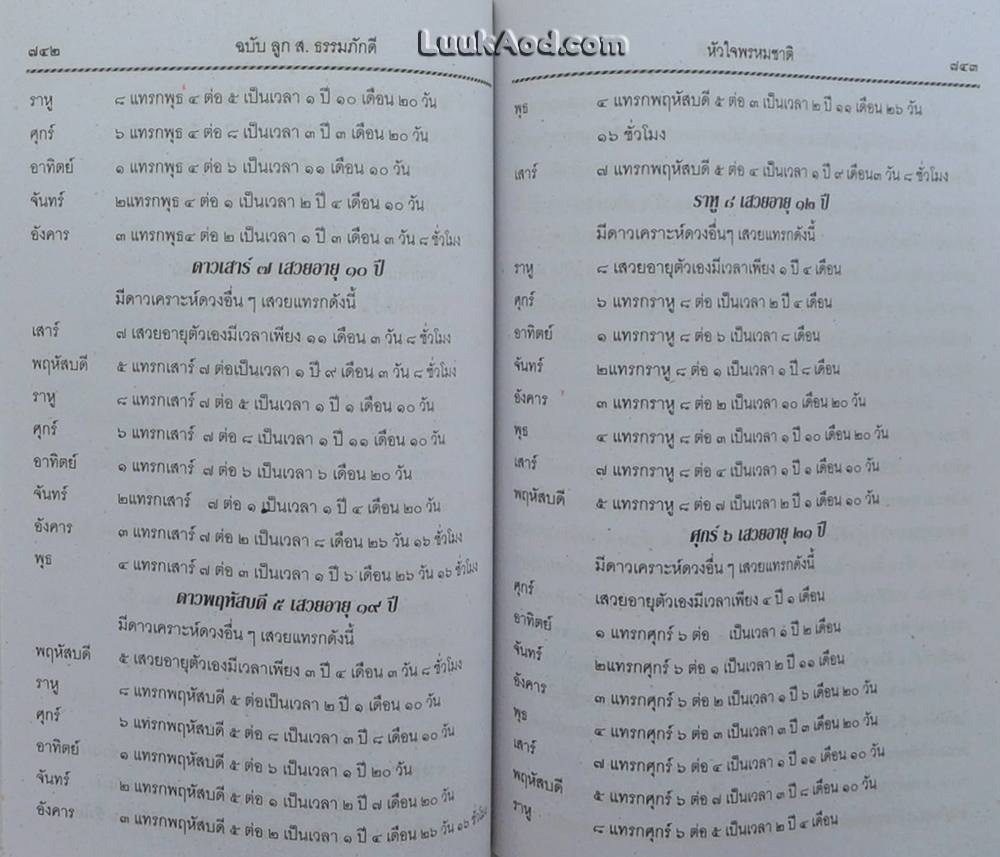 ๗๔๒ ฉบับ ลูก ส. ธรรมภักดี
LuukAod.com
ราหู ๘ แทรกพุธ ๔ ต่อ ๕ เป็นเวลา ๑ ปี ๑๐ เดือน ๒๐ วัน
ศุกร์ ๖ แทรกพุธ ๔ ต่อ ๘ เป็นเวลา ๓ ปี ๓ เดือน ๒๐ วัน
อาทิตย์ ๑ แทรกพุธ ๔ ต่อ ๖ เป็นเวลา ๑๑ เดือน ๑๐ วัน
จันทร์ ๒แทรกพุธ ๔ ต่อ ๑ เป็นเวลา ๒ ปี ๔ เดือน ๑๐ วัน
อังคาร ๓ แทรกพุธ๔ ต่อ ๒ เป็นเวลา ๑ ปี ๓ เดือน ๓ วัน ๘ ชั่วโมง
ดาวเสาร์ ๗ เสวยอายุ ๑๐ ปี
มีดาวเคราะห์ดวงอื่น ๆ เสวยแทรกดังนี้
เสาร์ ๗ เสวยอายุตัวเองมีเวลาเพียง ๑๑ เดือน ๓ วัน ๘ ชั่วโมง
พฤหัสบดี ๕ แทรกเสาร์ ๗ ต่อเป็นเวลา ๑ ปี ๙ เดือน ๓ วัน ๘ ชั่วโมง
ราหู ๘ แทรกเสาร์ ๗ ต่อ ๕ เป็นเวลา ๑ ปี ๑ เดือน ๑๐ วัน
ศุกร์ ๖ แทรกเสาร์ ๗ ต่อ ๘ เป็นเวลา ๑ ปี ๑๑ เดือน ๑๐ วัน
อาทิตย์ ๑ แทรกเสาร์ ๗ ต่อ ๖ เป็นเวลา ๖ เดือน ๒๐ วัน
จันทร์ ๒แทรกเสาร์ ๗ ต่อ ๑ เป็นเวลา ๑ ปี ๔ เดือน ๒๐ วัน
อังคาร ๓ แทรกเสาร์ ๗ ต่อ ๒ เป็นเวลา ๘ เดือน ๒๖ วัน ๑๖ ชั่วโมง
พุธ ๔ แทรกเสาร์ ๗ ต่อ ๓ เป็นเวลา ๑ ปี ๖ เดือน ๒๖ วัน ๑๖ ชั่วโมง
ดาวพฤหัสบดี ๕ เสวยอายุ ๑๙ ปี
มีดาวเคราะห์ดวงอื่น ๆ เสวยแทรกดังนี้
พฤหัสบดี ๕ เสวยอายุตัวเองมีเวลาเพียง ๓ ปี ๔ เดือน ๓ วัน ๘ ชั่วโมง
ราหู ๘ แทรกพฤหัสบดี ๕ ต่อเป็นเวลา ๒ ปี ๑ เดือน ๑๐ วัน
ศุกร์ ๖ แทรกพฤหัสบดี ๕ ต่อ ๘ เป็นเวลา ๓ ปี ๘ เดือน ๑๐ วัน
อาทิตย์ ๑ แทรกพฤหัสบดี ๕ ต่อ ๖ เป็นเวลา ๑ ปี ๒๐ วัน
จันทร์ ๒ แทรกพฤหัสบดี ๕ ต่อ ๑ เป็นเวลา ๒ ปี ๗ เดือน ๒๐ วัน
อังคาร ๓ แทรกพฤหัสบดี ๕ ต่อ ๒ เป็นเวลา ๑ ปี ๔ เดือน ๒๖ วัน ๑๖ ชั่วโมง
หัวใจพรหมชาติ ๗๔๓
พุธ ๔ แทรกพฤหัสบดี ๕ ต่อ ๓ เป็นเวลา ๒ ปี ๑๑ เดือน ๒๖ วัน
๑๖ ชั่วโมง
เสาร์ ๗ แทรกพฤหัสบดี ๕ ต่อ ๔ เป็นเวลา ๑ ปี ๙ เดือน๓ วัน ๘ ชั่วโมง
ราหู ๘ เสวยอายุ ๑๒ ปี
มีดาวเคราะห์ดวงอื่นๆ เสวยแทรกดังนี้
ราหู ๘ เสวยอายุตัวเองมีเวลาเพียง ๑ ปี ๔ เดือน
ศุกร์ ๖ แทรกราหู ๘ ต่อ เป็นเวลา ๒ ปี ๔ เดือน
อาทิตย์ ๑ แทรกราหู ๘ ต่อ ๖ เป็นเวลา ๘ เดือน
จันทร์ ๒แทรกราหู ๘ ต่อ ๑ เป็นเวลา ๑ปี ๘ เดือน
อังคาร ๓ แทรกราหู ๘ ต่อ ๒ เป็นเวลา ๑๐ เดือน ๒๐ วัน
พุธ ๔ แทรกราหู ๘ ต่อ ๓ เป็นเวลา ๑ ปี ๑๐ เดือน ๒๐ วัน
เสาร์ ๗ แทรกราหู ๘ ต่อ ๔ เป็นเวลา ๑ ปี ๑ เดือน ๑๐ วัน
พฤหัสบดี ๕ แทรกราหู ๘ ต่อ ๗ เป็นเวลา ๒ ปี ๑ เดือน ๑๐ วัน
ศุกร์ ๖ เสวยอายุ ๒๑ ปี
มีดาวเคราะห์ดวงอื่น ๆ เสวยแทรกดังนี้
ศุกร์ เสวยอายุตัวเองมีเวลาเพียง ๔ ปี ๑ เดือน
อาทิตย์ ๑ แทรกศุกร์ ๖ ต่อ เป็นเวลา ๑ ปี ๒ เดือน
จันทร์ ๒แทรกศุกร์ ๖ ต่อ ๑ เป็นเวลา ๒ ปี ๑๑ เดือน
อังคาร ๓ แทรกศุกร์ ๖ ต่อ ๒ เป็นเวลา ๑ ปี ๖ เดือน ๒๐ วัน
พุธ ๔ แทรกศุกร์ ๖ ต่อ ๓ เป็นเวลา ๓ ปี ๓ เดือน ๒๐ วัน
เสาร์ ๗ แทรกศุกร์ ๖ ต่อ ๔ เป็นเวลา ๑ ปี ๑๑ เดือน ๑๐ วัน
พฤหัสบดี ๕ แทรกศุกร์ ๖ ต่อ ๗ เป็นเวลา ๓ ปี ๘ เดือน ๑๐ วัน
ราหู ๘ แทรกศุกร์ ๖ ต่อ ๕ เป็นเวลา ๒ ปี ๔ เดือน